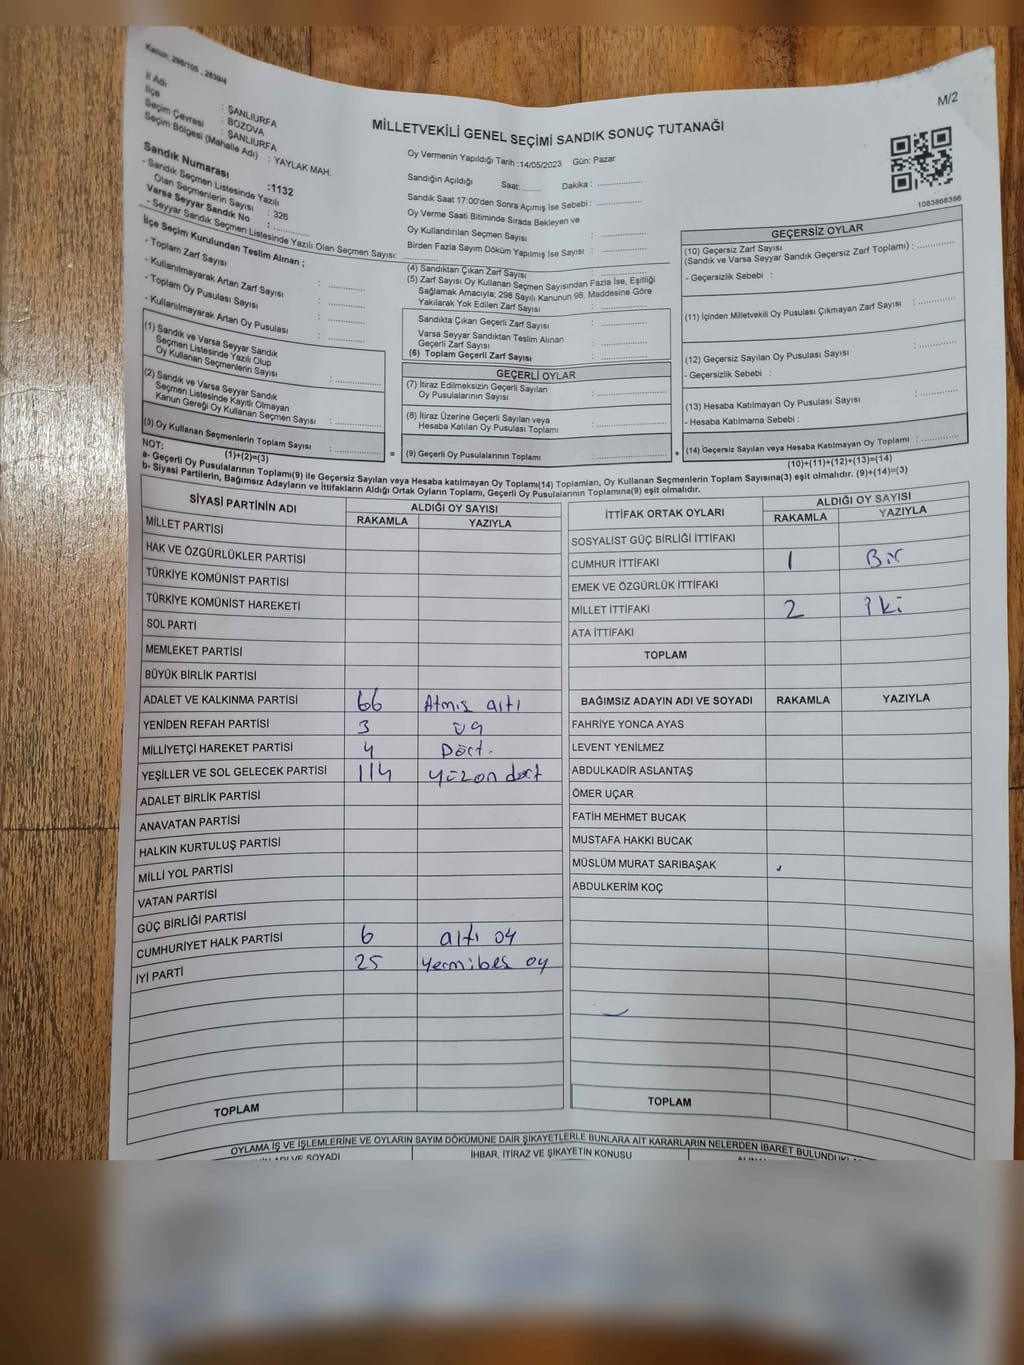 Kanun: 298/105 , 2839/4
M/2
MİLLETVEKİLİ GENEL SEÇİMİ SANDIK SONUÇ TUTANAĞI
İl Adı : ŞANLIURFA
İlçe : BOZOVA
Seçim Çevresi : ŞANLIURFA
Seçim Bölgesi (Mahalle Adı) : YAYLAK MAH.
Sandık Numarası :1132
- Sandık Seçmen Listesinde Yazılı
Olan Seçmenlerin Sayısı : 326
Varsa Seyyar Sandık No : ............
- Seyyar Sandık Seçmen Listesinde Yazılı Olan Seçmen Sayısı: ............
İlçe Seçim Kurulundan Teslim Alınan ;
- Toplam Zarf Sayısı : ............
- Kullanılmayarak Artan Zarf Sayısı : ............
- Toplam Oy Pusulası Sayısı : ............
- Kullanılmayarak Artan Oy Pusulası : ............
(1) Sandık ve Varsa Seyyar Sandık
Seçmen Listesinde Yazılı Olup
Oy Kullanan Seçmenlerin Sayısı : ............
(2) Sandık ve Varsa Seyyar Sandık
Seçmen Listesinde Kayıtlı Olmayan
Kanun Gereği Oy Kullanan Seçmen Sayısı : ............
(3) Oy Kullanan Seçmenlerin Toplam Sayısı : ............
(1)+(2)=(3)
Oy Vermenin Yapıldığı Tarih :14/05/2023 Gün: Pazar
Sandığın Açıldığı Saat: ...... Dakika : ............
Sandık Saat 17:00'den Sonra Açımış İse Sebebi : ............
Oy Verme Saati Bitiminde Sırada Bekleyen ve
Oy Kullandırılan Seçmen Sayısı : ............
Birden Fazla Sayım Döküm Yapılmış İse Sayısı : ............
(4) Sandıktan Çıkan Zarf Sayısı : ............
(5) Zarf Sayısı Oy Kullanan Seçmen Sayısından Fazla İse, Eşitliği
Sağlamak Amacıyla; 298 Sayılı Kanunun 98. Maddesine Göre
Yakılarak Yok Edilen Zarf Sayısı : ............
Sandıkta Çıkan Geçerli Zarf Sayısı : ............
Varsa Seyyar Sandıktan Teslim Alınan
Geçerli Zarf Sayısı : ............
(6) Toplam Geçerli Zarf Sayısı : ............
GEÇERLİ OYLAR
(7) İtiraz Edilmeksizin Geçerli Sayılan
Oy Pusulalarının Sayısı : ............
(8) İtiraz Üzerine Geçerli Sayılan veya
Hesaba Katılan Oy Pusulası Toplamı : ............
= (9) Geçerli Oy Pusulalarının Toplamı : ............ +
1083868386
GEÇERSİZ OYLAR
(10) Geçersiz Zarf Sayısı
(Sandık ve Varsa Seyyar Sandık Geçersiz Zarf Toplamı) : ............
- Geçersizlik Sebebi :
(11) İçinden Milletvekili Oy Pusulası Çıkmayan Zarf Sayısı : ............
(12) Geçersiz Sayılan Oy Pusulası Sayısı : ............
- Geçersizlik Sebebi :
(13) Hesaba Katılmayan Oy Pusulası Sayısı : ............
- Hesaba Katılmama Sebebi :
(14) Geçersiz Sayılan veya Hesaba Katılmayan Oy Toplamı : ............
(10)+(11)+(12)+(13)=(14)
NOT:
a- Geçerli Oy Pusulalarının Toplamı(9) ile Geçersiz Sayılan veya Hesaba katılmayan Oy Toplamı(14) Toplamları, Oy Kullanan Seçmenlerin Toplam Sayısına(3) eşit olmalıdır. (9)+(14)=(3)
b- Siyasi Partilerin, Bağımsız Adayların ve İttifakların Aldığı Ortak Oyların Toplamı, Geçerli Oy Pusulalarının Toplamına(9) eşit olmalıdır.
SİYASİ PARTİNİN ADI ALDIĞI OY SAYISI
RAKAMLA YAZIYLA
MİLLET PARTİSİ
HAK VE ÖZGÜRLÜKLER PARTİSİ
TÜRKİYE KOMÜNİST PARTİSİ
TÜRKİYE KOMÜNİST HAREKETİ
SOL PARTİ
MEMLEKET PARTİSİ
BÜYÜK BİRLİK PARTİSİ
ADALET VE KALKINMA PARTİSİ 66 Atmış altı
YENİDEN REFAH PARTİSİ 3 üç
MİLLİYETÇİ HAREKET PARTİSİ 4 Dört.
YEŞİLLER VE SOL GELECEK PARTİSİ 114 yüzon dört
ADALET BİRLİK PARTİSİ
ANAVATAN PARTİSİ
HALKIN KURTULUŞ PARTİSİ
MİLLİ YOL PARTİSİ
VATAN PARTİSİ
GÜÇ BİRLİĞİ PARTİSİ
CUMHURİYET HALK PARTİSİ 6 altı oy
İYİ PARTİ 25 Yermibes oy
TOPLAM
İTTİFAK ORTAK OYLARI ALDIĞI OY SAYISI
RAKAMLA YAZIYLA
SOSYALİST GÜÇ BİRLİĞİ İTTİFAKI
CUMHUR İTTİFAKI 1 Bir
EMEK VE ÖZGÜRLÜK İTTİFAKI
MİLLET İTTİFAKI 2 İki
ATA İTTİFAKI
TOPLAM
BAĞIMSIZ ADAYIN ADI VE SOYADI RAKAMLA YAZIYLA
FAHRİYE YONCA AYAS
LEVENT YENİLMEZ
ABDULKADİR ASLANTAŞ
ÖMER UÇAR
FATİH MEHMET BUCAK
MUSTAFA HAKKI BUCAK
MÜSLÜM MURAT SARIBAŞAK
ABDULKERİM KOÇ
TOPLAM
OYLAMA İŞ VE İŞLEMLERİNE VE OYLARIN SAYIM DÖKÜMÜNE DAİR ŞİKAYETLERLE BUNLARA AİT KARARLARIN NELERDEN İBARET BULUNDUK
ADI VE SOYADI İHBAR, İTİRAZ VE ŞİKAYETİN KONUSU